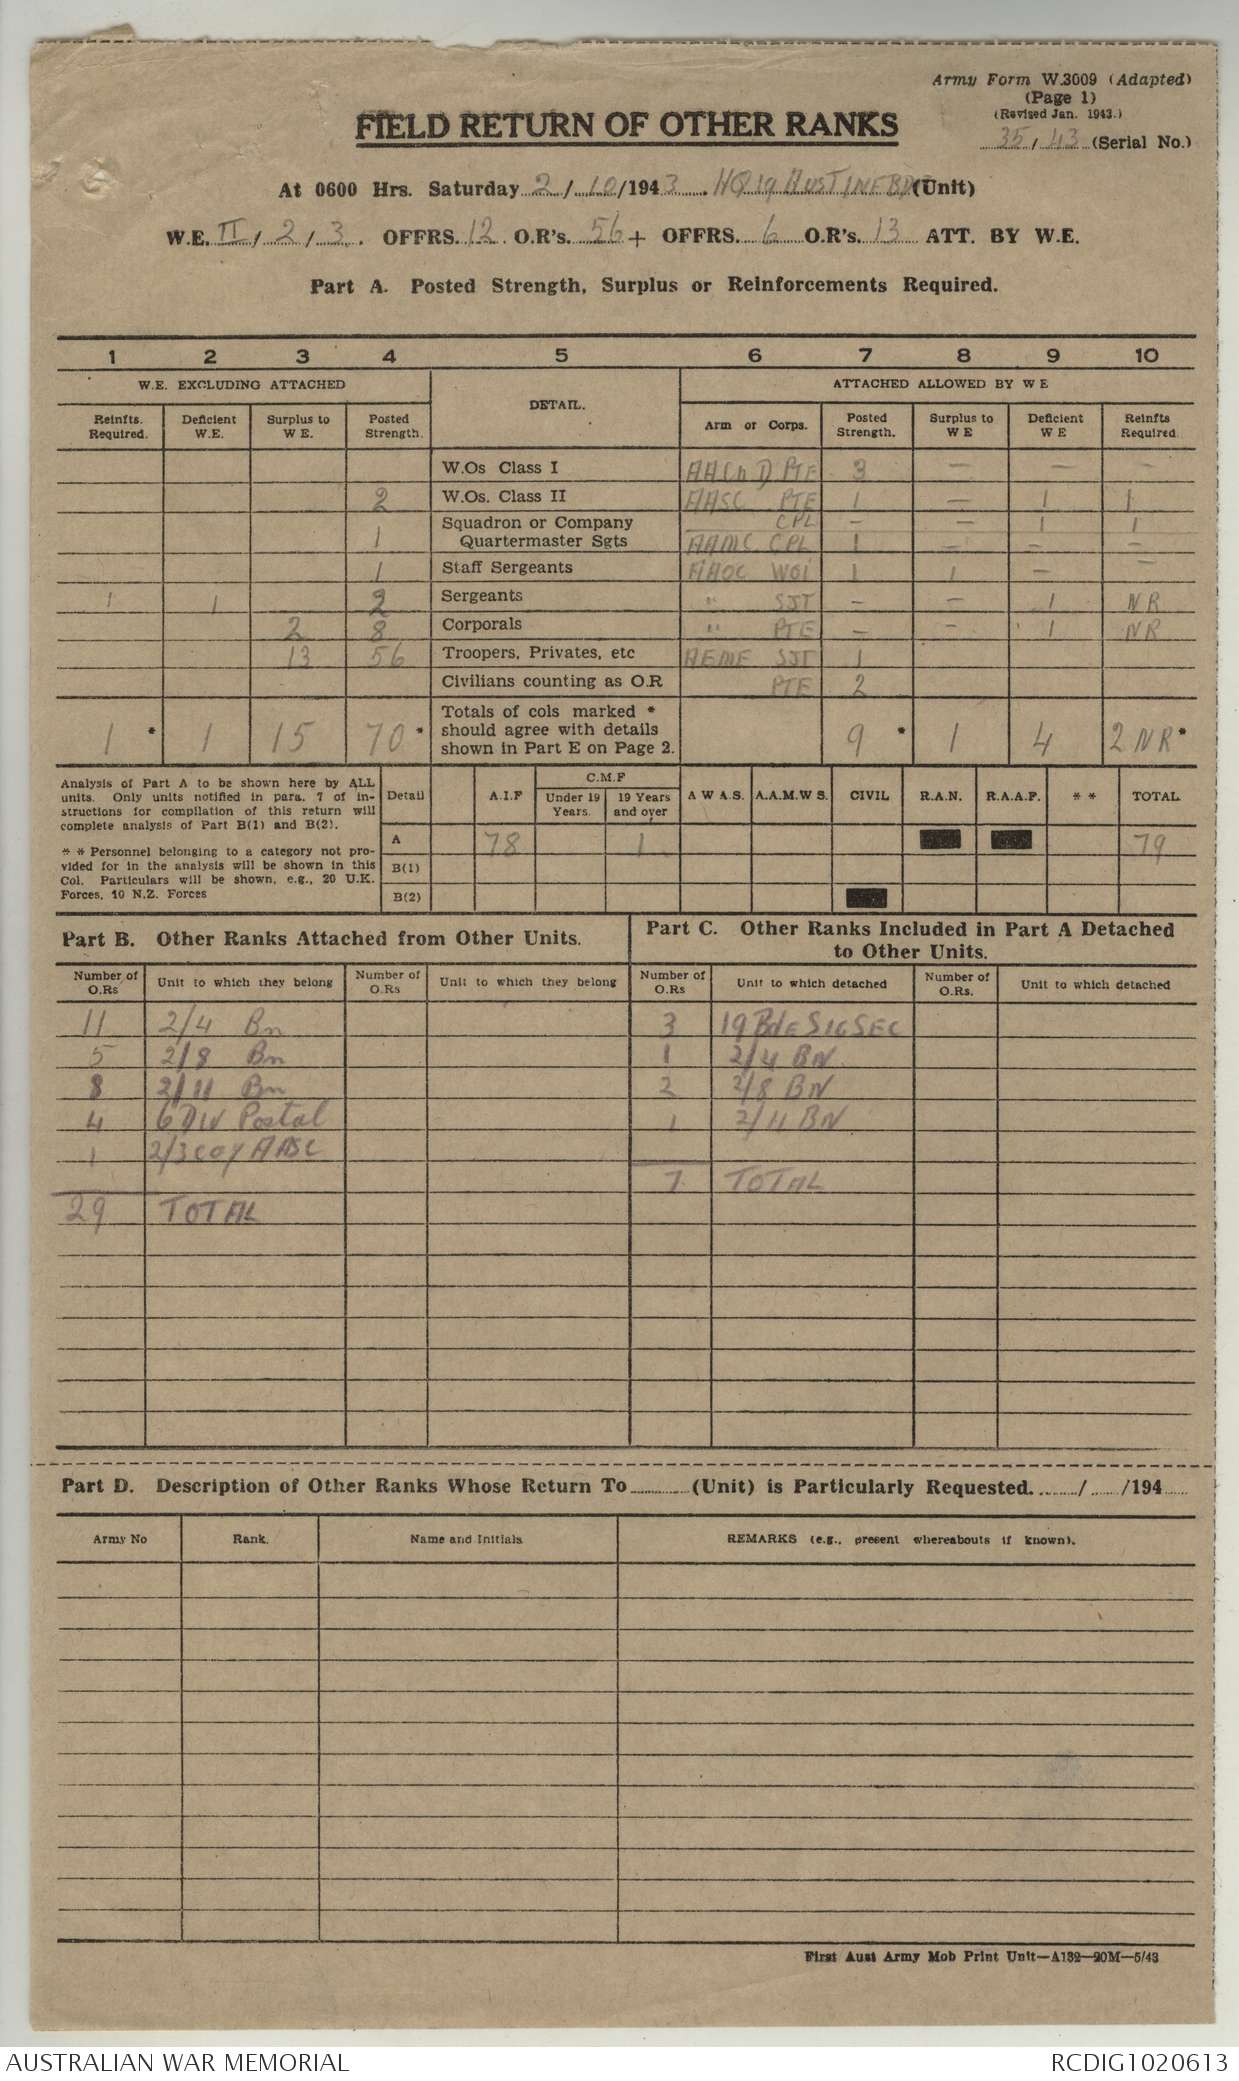 Army Form W.3009 (Adapted)
(Page 1)
(Revised Jan. 1943.)
35/43 (Serial No.)
FIELD RETURN OF OTHER RANKS
At 0600 Hrs. Saturday 2/10/1943. HQ 19 AUST INF BDE (Unit)
W.E. II/2/3. OFFRS. 12 O.R's. 56 + OFFRS. 6 O.R's. 13 ATT. BY W.E.
Part A. Posted Strength, Surplus or Reinforcements Required.
1 2 3 4 5 6 7 8 9 10
W.E. EXCLUDING ATTACHED DETAIL. ATTACHED ALLOWED BY W E
Reinfts. Required. Deficient W.E. Surplus to W E. Posted Strength. Arm or Corps. Posted Strength. Surplus to W E Deficient W E Reinfts Required.
W.Os Class I AACh D PTE 3 — — —
2 W.Os. Class II AASC PTE 1 — 1 1
Squadron or Company CPL — — 1 1
1 Quartermaster Sgts AAMC CPL 1 — — —
1 Staff Sergeants AAOC WO1 1 1 — —
1 1 2 Sergeants " SJT — — 1 NR
2 8 Corporals " PTE — — 1 NR
13 56 Troopers, Privates, etc AEME SJT 1
Civilians counting as O.R PTE 2
Totals of cols marked *
should agree with details
shown in Part E on Page 2.
1 * 1 15 70 * 9 * 1 4 2 NR *
Analysis of Part A to be shown here by ALL
units. Only units notified in para. 7 of in-
structions for compilation of this return will
complete analysis of Part B(1) and B(2).
* * Personnel belonging to a category not pro-
vided for in the analysis will be shown in this
Col. Particulars will be shown, e.g., 20 U.K.
Forces, 10 N.Z. Forces
Detail A.I.F C.M.F Under 19 Years. 19 Years and over A W A.S. A.A.M.W S. CIVIL R.A.N. R.A.A.F. * * TOTAL
A 78 1 79
B(1)
B(2)
Part B. Other Ranks Attached from Other Units.
Number of O.Rs Unit to which they belong Number of O.Rs Unit to which they belong
11 2/4 Bn
5 2/8 Bn
8 2/11 Bn
4 6 Div Postal
1 2/3 Coy AASC
29 TOTAL
Part C. Other Ranks Included in Part A Detached
to Other Units.
Number of O.Rs Unit to which detached Number of O.Rs. Unit to which detached
3 19 Bde SIG SEC
1 2/4 BN
2 2/8 BN
1 2/11 BN
7 TOTAL
Part D. Description of Other Ranks Whose Return To (Unit) is Particularly Requested. / /194
Army No Rank. Name and Initials REMARKS (e.g., present whereabouts if known).
First Aust Army Mob Print Unit—A132—20M—5/43
AUSTRALIAN WAR MEMORIAL RCDIG1020613